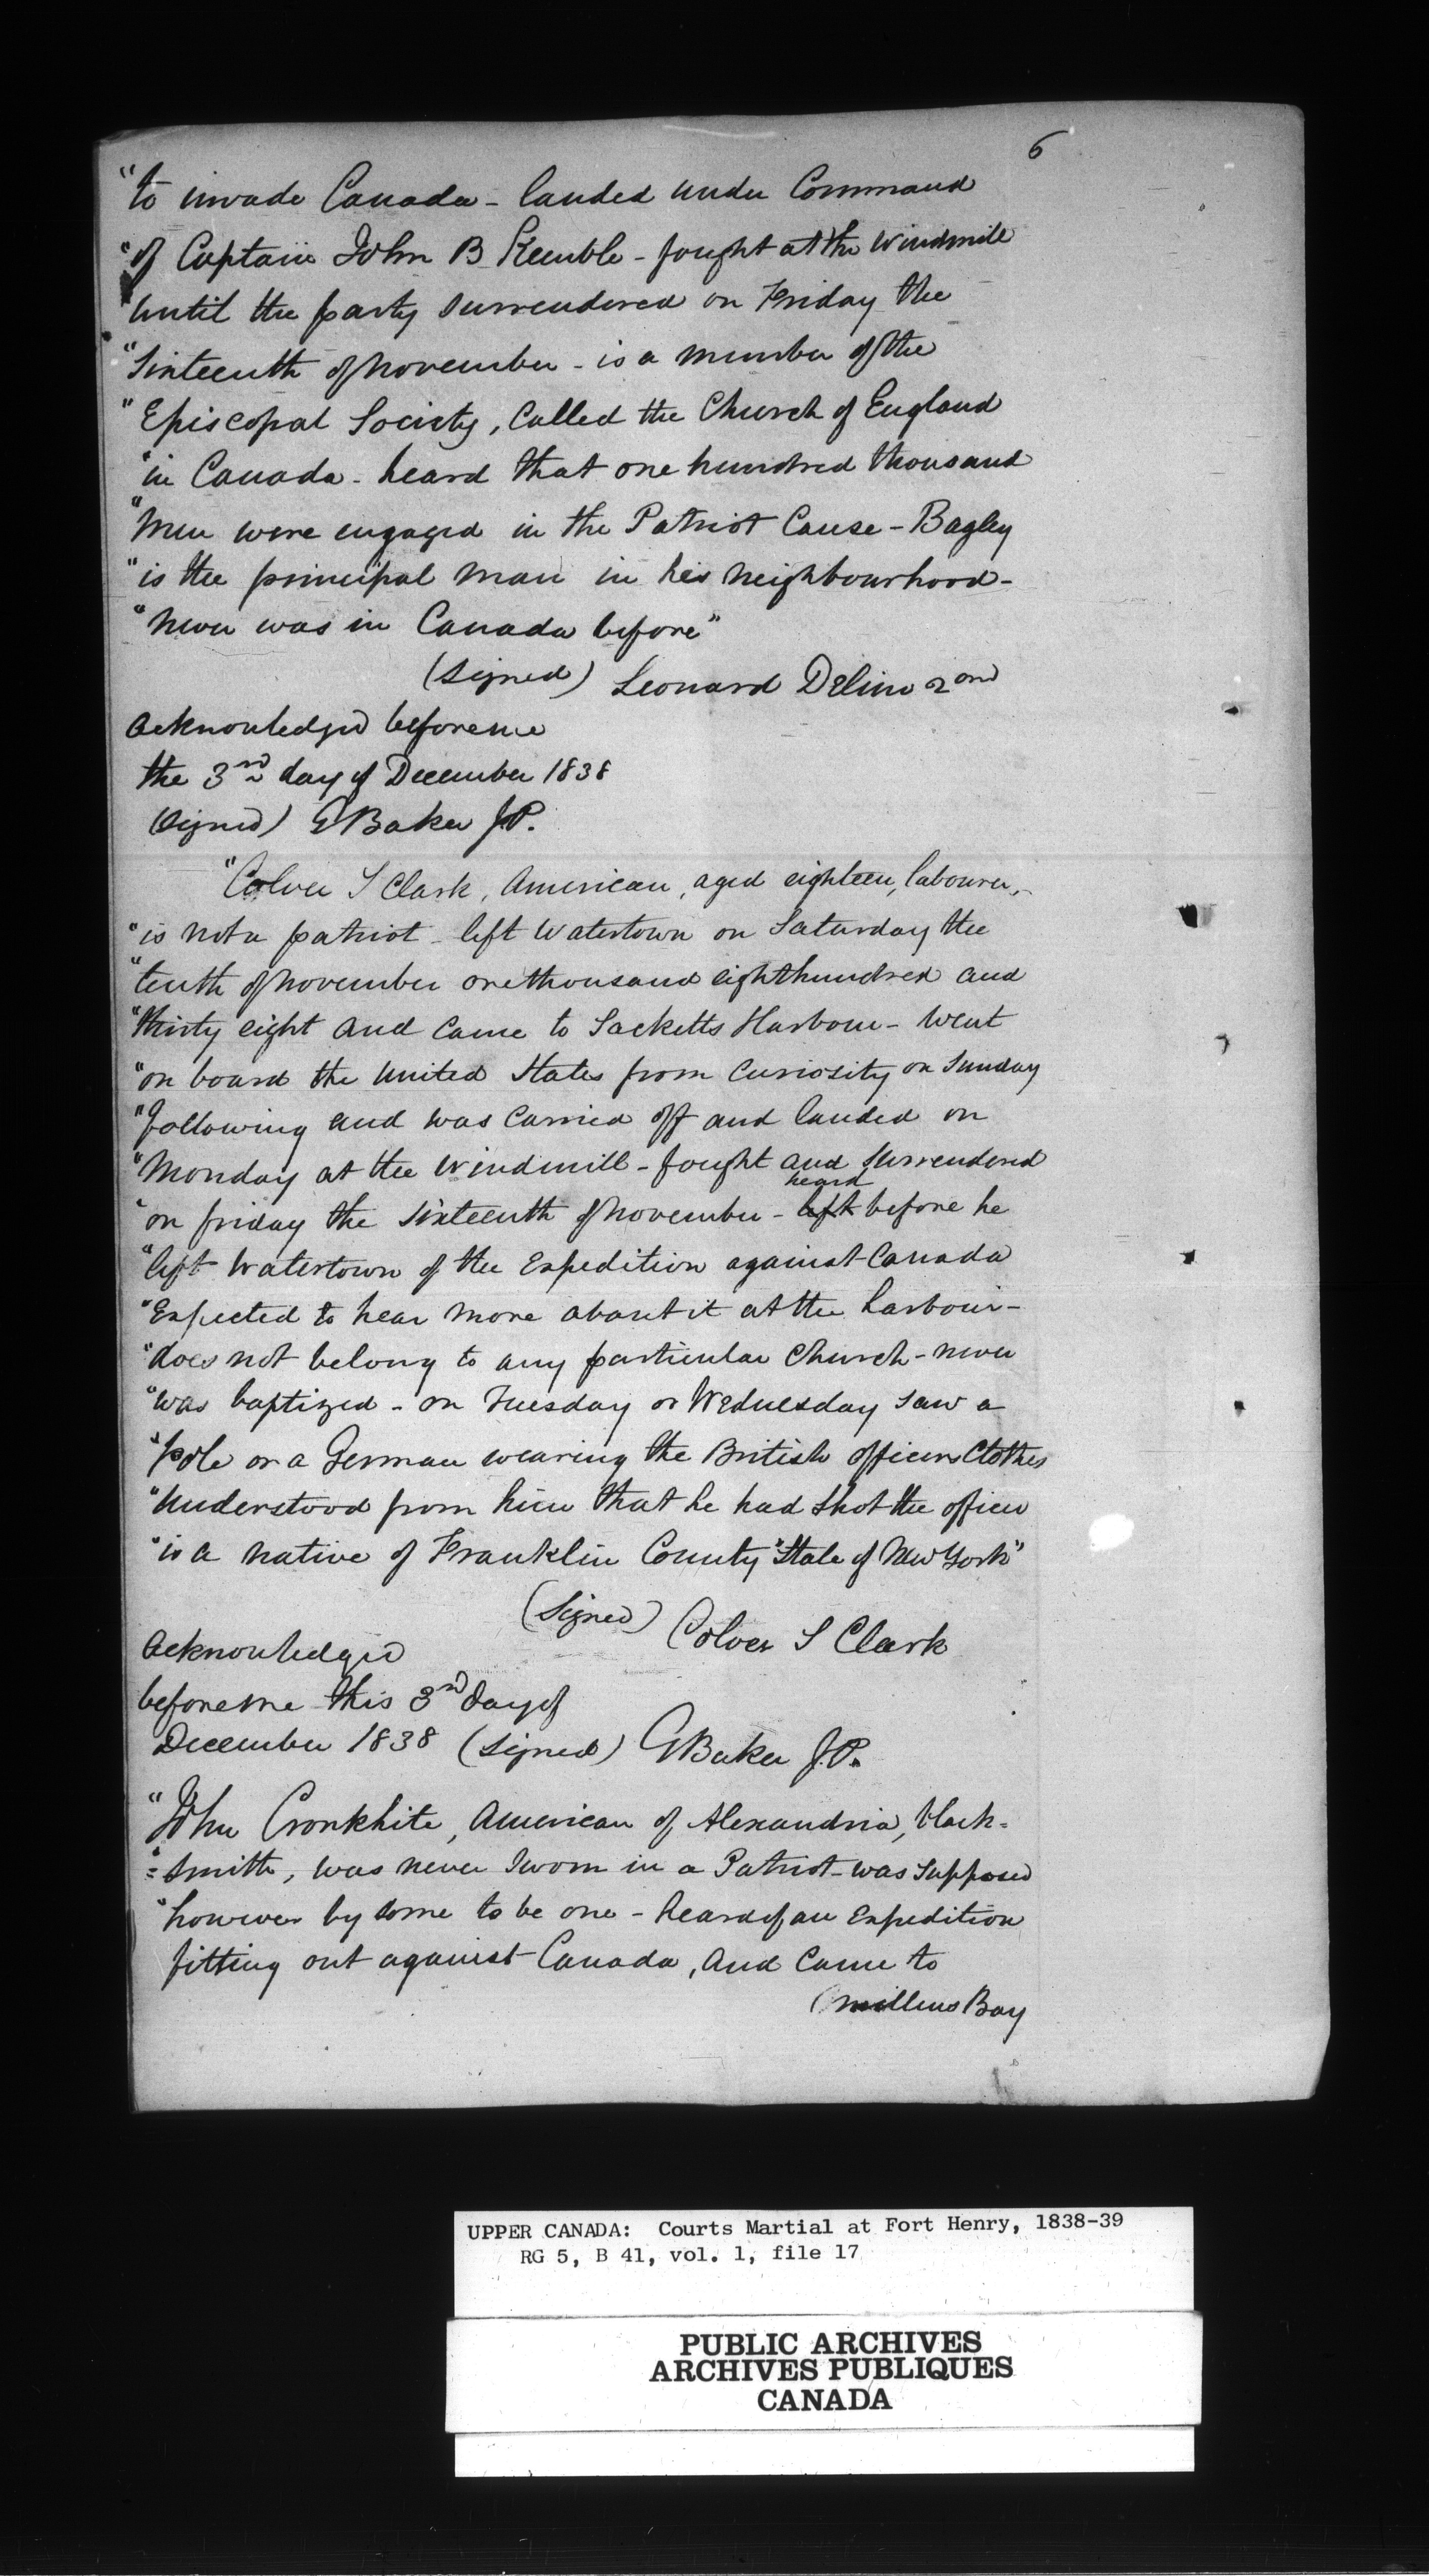 6
"to invade Canada - landed under Command
"of Captain John B Kemble - fought at the Windmill
"until the party surrendered on Friday the
"Sixteenth of November - is a member of the
"Episcopal Society, Called the Church of England
"in Canada - heard that one hundred thousand
"Men were engaged in the Patriot Cause - Bagley
"is the principal man in his neighbourhood -
"never was in Canada before"
(signed) Leonard Delino 2nd
Acknowledged before me
the 3rd day of December 1838
(signed) GBaker J.P.
"Colver S Clark, American, aged eighteen, labourer, -
"is not a patriot - left Watertown on Saturday the
"tenth of November one thousand eight hundred and
"thirty eight and came to Sacketts Harbour - Went
"on board the United States from Curiosity on Sunday
"following and was Carried off and landed on
"Monday at the Windmill - fought and surrendered
"on friday the sixteenth of November - left heard before he
"left Watertown of the Expedition against Canada
"Expected to hear more about it at the harbour -
"does not belong to any particular Church - never
"was baptized - on Tuesday or Wednesday saw a
"Pole or a German wearing the British officers Clothes
"Understood from him that he had shot the officer
"is a native of Franklin County "State of New York"
(Signed) Colver S Clark
Acknowledged
before me this 3rd day of
December 1838 (signed) GBaker J.P.
"John Cronkhite, American of Alexandria, black=
"=smith, was never sworn in a Patriot - was supposed
"however by some to be one - heard of an Expedition
fitting out against Canada, and came to
(Millens Bay
UPPER CANADA: Courts Martial at Fort Henry, 1838-39
RG 5, B 41, vol. 1, file 17
PUBLIC ARCHIVES
ARCHIVES PUBLIQUES
CANADA